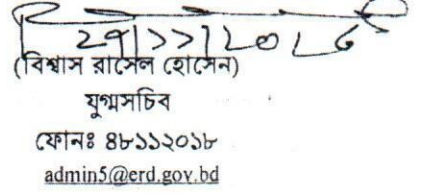 ২৭/১১/২০১৮
(বিশ্বাস রাসেল হোসেন)
যুগ্মসচিব
ফোনঃ ৪৮১১২০১৮
admin5@erd.gov.bd